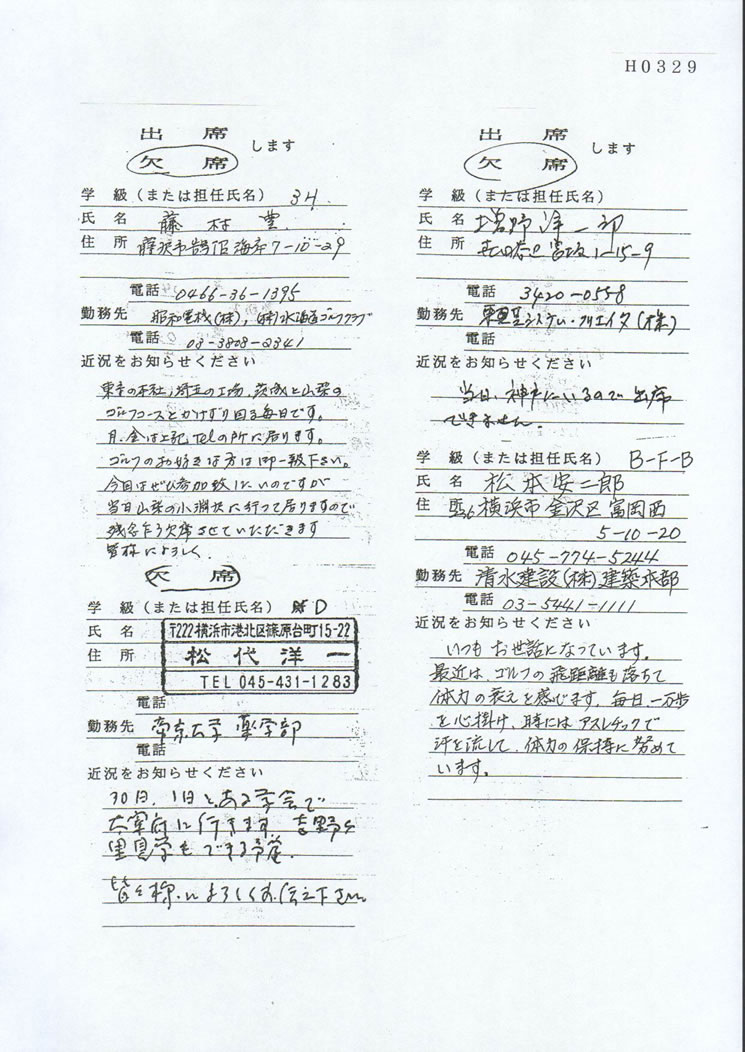 H0329
出席
欠席
します
学級(または担任氏名) 3H
氏名 藤村 豊
住所 藤沢市鵠沼海岸7-10-29
電話 0466-36-1395
勤務先 昭和電機(株),(株)水海道ゴルフクラブ
電話 03-3808-2341
近況をお知らせください
東京の本社,埼玉の工場,茨城と山梨の
ゴルフコースとかけずり回る毎日です。
月,金は上記Telの所に居ります。
ゴルフのお好きな方は御一報下さい。
今回はぜひ参加致したいのですが
当日山梨の小淵沢に行って居りますので
残念乍ら欠席させていただきます
皆様によろしく.
欠席
学級(または担任氏名) D
氏名
〒222横浜市港北区篠原台町15-22
住所
松代洋一
TEL 045-431-1283
電話
勤務先 帝京大学 薬学部
電話
近況をお知らせください
30日,1日とある学会で
太宰府に行きます.吉野ヶ
里見学もできる予定.
皆々様によろしくお伝え下さい
出席
欠席
します
学級(または担任氏名)
氏名 増野 一郎
住所 1-15-9
電話 3420-0558
勤務先 システム・クリエイタ(株)
電話
近況をお知らせください
当日,神戸にいるので出席
できません.
学級(または担任氏名) B-F-B
氏名 松本安二郎
住所 236 横浜市金沢区富岡西
5-10-20
電話 045-774-5244
勤務先 清水建設(株)建築本部
電話 03-5441-1111
近況をお知らせください
いつもお世話になっています。
最近は、ゴルフの飛距離も落ちて
体力の衰えを感じます。毎日一万歩
を心掛け、時にはアスレチックで
汗を流して、体力の保持に努めて
います。